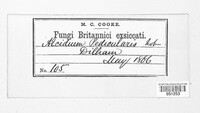 M. C. COOKE.
Fungi Britannici exsiccati.
Æcidium Pedicularis Lib
Dilham
May 1866
No. 105.